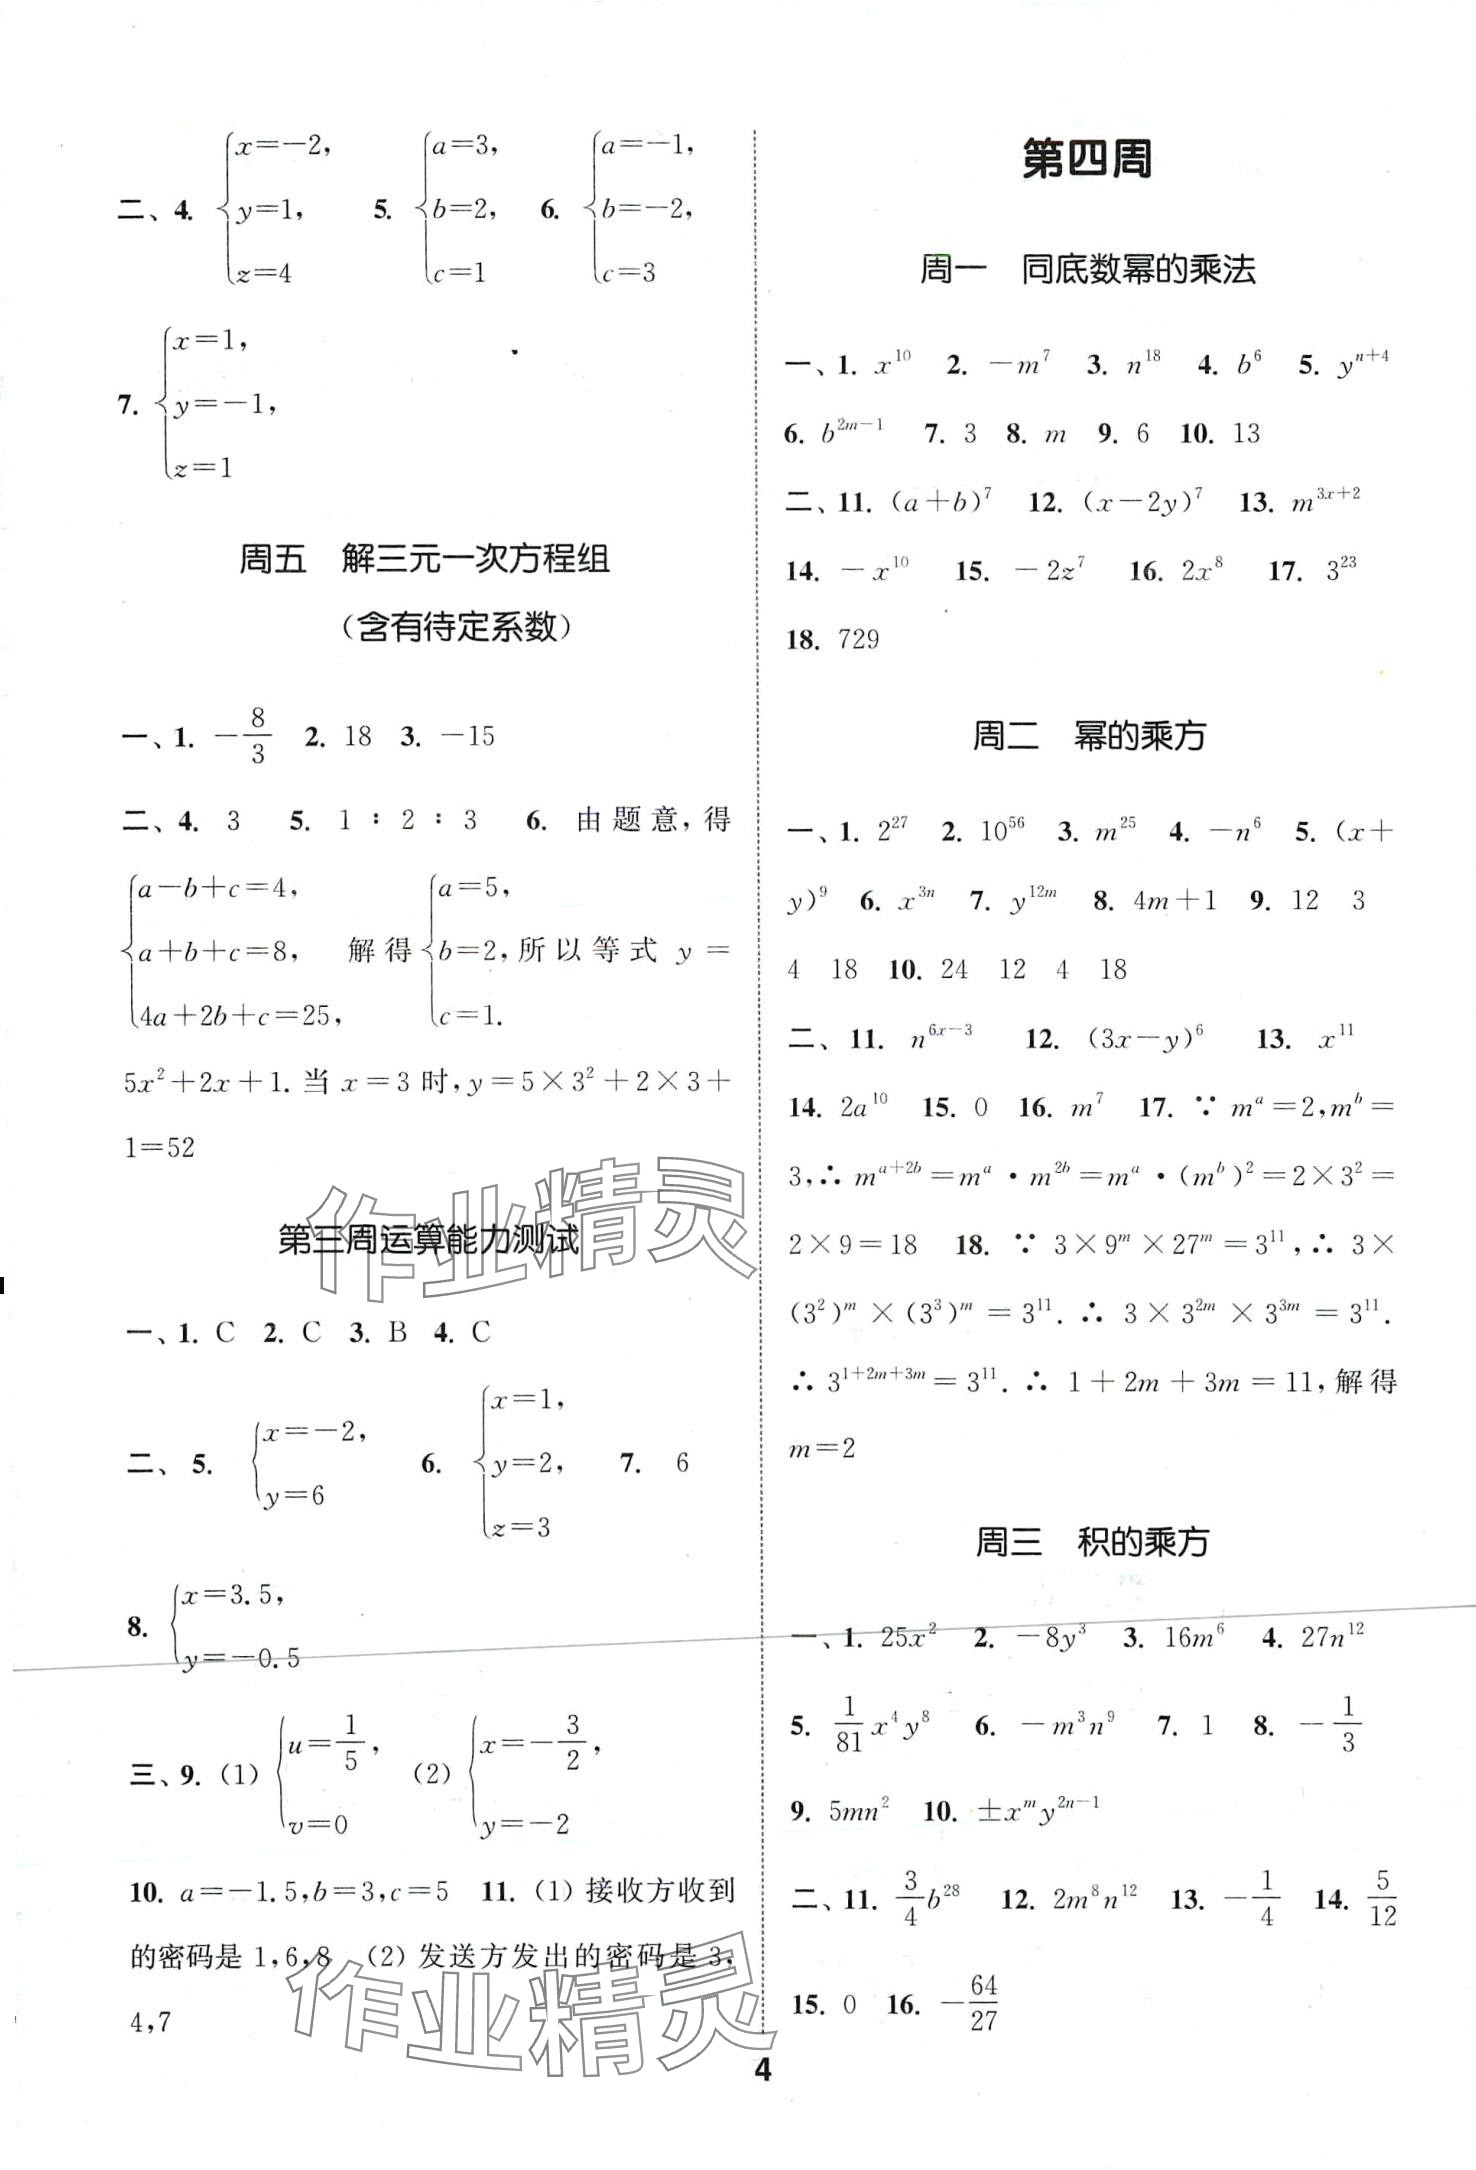 二、4. {x=-2, y=1, z=4  5. {a=3, b=2, c=1  6. {a=-1, b=-2, c=3
7. {x=1, y=-1, z=1
周五 解三元一次方程组
(含有待定系数)
一、1. -8/3  2. 18  3. -15
二、4. 3  5. 1:2:3  6. 由题意,得
{a-b+c=4, a+b+c=8, 4a+2b+c=25, 解得{a=5, b=2, c=1. 所以等式 y=
5x²+2x+1. 当 x=3 时, y=5×3²+2×3+
1=52
第三周运算能力测试
一、1. C  2. C  3. B  4. C
二、5. {x=-2, y=6  6. {x=1, y=2, z=3  7. 6
8. {x=3.5, y=-0.5
三、9. (1) {u=1/5, v=0  (2) {x=-3/2, y=-2
10. a=-1.5,b=3,c=5  11. (1)接收方收到
的密码是1,6,8  (2)发送方发出的密码是3,
4,7
第四周
周一 同底数幂的乘法
一、1. x^10  2. -m^7  3. n^18  4. b^6  5. y^(n+4)
6. b^(2m-1)  7. 3  8. m  9. 6  10. 13
二、11. (a+b)^7  12. (x-2y)^7  13. m^(3x+2)
14. -x^10  15. -2z^7  16. 2x^8  17. 3^23
18. 729
周二 幂的乘方
一、1. 2^27  2. 10^56  3. m^25  4. -n^6  5. (x+
y)^9  6. x^(3n)  7. y^(12m)  8. 4m+1  9. 12  3
4  18  10. 24  12  4  18
二、11. n^(6x-3)  12. (3x-y)^6  13. x^11
14. 2a^10  15. 0  16. m^7  17. ∵ m^a=2,m^b=
3,∴ m^(a+2b)=m^a·m^(2b)=m^a·(m^b)²=2×3²=
2×9=18  18. ∵ 3×9^m×27^m=3^11,∴ 3×
(3²)^m×(3³)^m=3^11. ∴ 3×3^(2m)×3^(3m)=3^11.
∴ 3^(1+2m+3m)=3^11. ∴ 1+2m+3m=11,解得
m=2
周三 积的乘方
一、1. 25x²  2. -8y³  3. 16m^6  4. 27n^12
5. 1/81 x^4y^8  6. -m³n^9  7. 1  8. -1/3
9. 5mn²  10. ±x^m y^(2n-1)
二、11. 3/4 b^28  12. 2m^8n^12  13. -1/4  14. 5/12
15. 0  16. -64/27
4
作业精灵
作业精灵